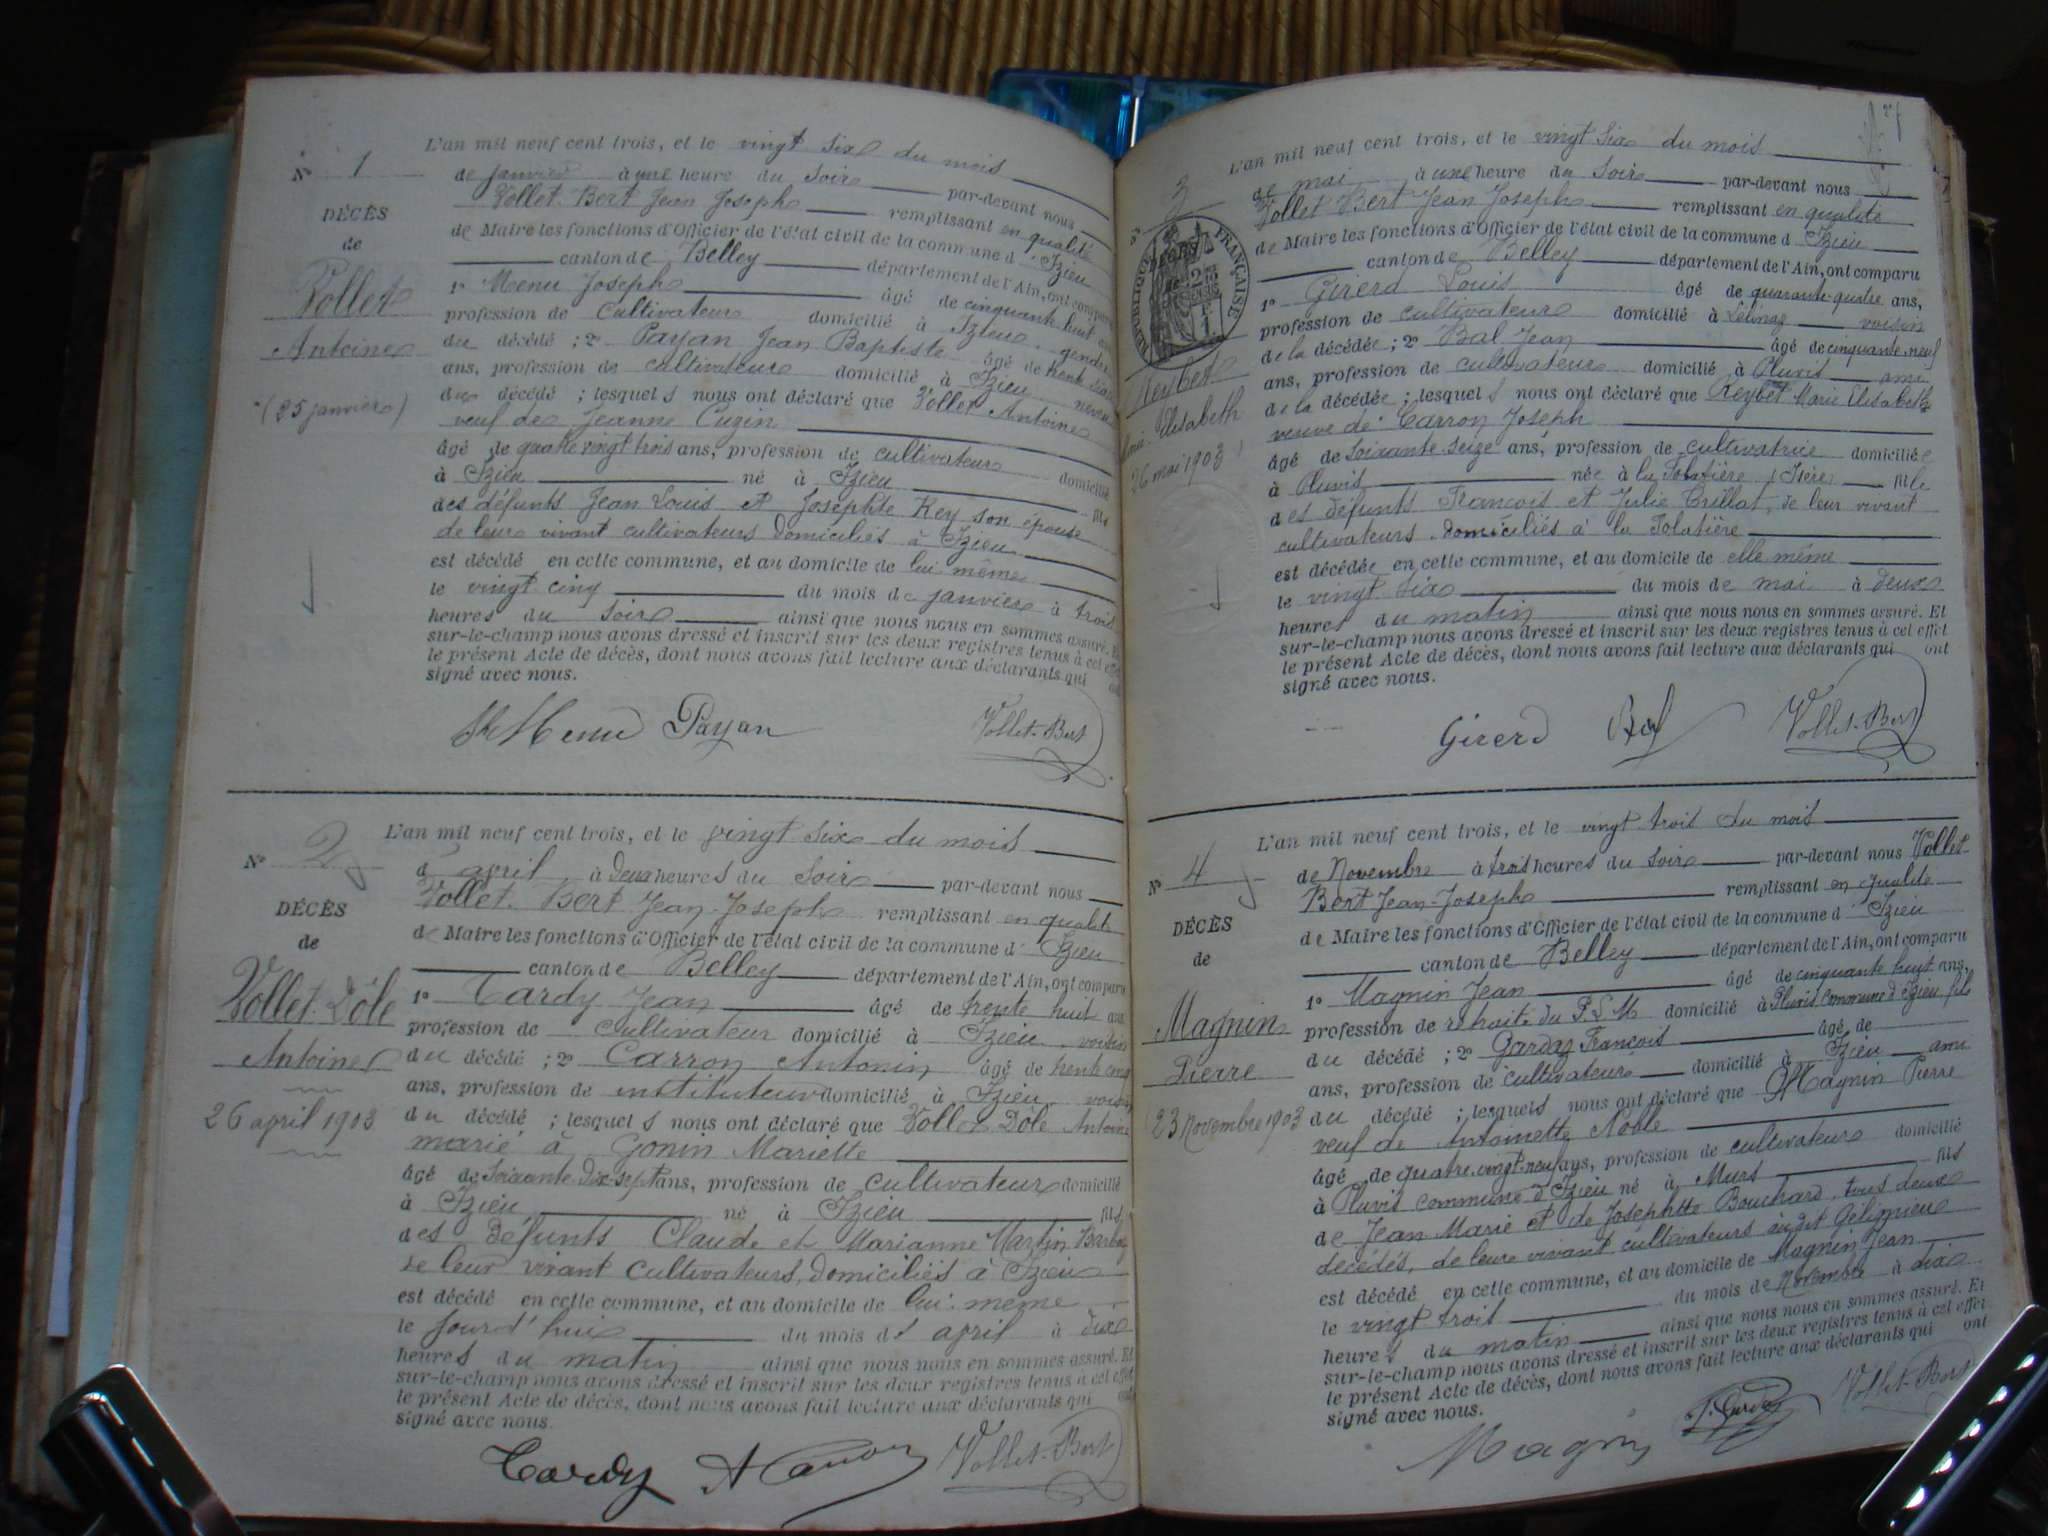 N° 1
DÉCÈS
de
Vollet
Antoine
(25 janvier)
L'an mil neuf cent trois, et le vingt six du mois
de janvier à une heure du soir par-devant nous
Vollet-Bert Jean Joseph remplissant en qualité
de Maire les fonctions d'Officier de l'état civil de la commune d'Izieu
canton de Belley département de l'Ain, ont comparu
1° Menu Joseph âgé de cinquante huit ans
profession de cultivateur domicilié à Izieu, gendre
du décédé ; 2° Payan Jean Baptiste âgé de trente
ans, profession de cultivateur domicilié à Izieu neveu
du décédé ; lesquels nous ont déclaré que Vollet Antoine
veuf de Jeanne Cuzin
âgé de quatre vingt trois ans, profession de cultivateur domicilié
à Izieu né à Izieu fils
des défunts Jean Louis et Josephte Rey son épouse
de leur vivant cultivateurs domiciliés à Izieu
est décédé en cette commune, et au domicile de lui-même
le vingt cinq du mois de janvier à trois
heures du soir ainsi que nous nous en sommes assuré. Et
sur-le-champ nous avons dressé et inscrit sur les deux registres tenus à cet effet
le présent Acte de décès, dont nous avons fait lecture aux déclarants qui ont
signé avec nous.
Menu Payan Vollet-Bert
N° 2
DÉCÈS
de
Vollet-Dôle
Antoine
26 april 1903
L'an mil neuf cent trois, et le vingt six du mois
d'april à deux heures du soir par-devant nous
Vollet-Bert Jean-Joseph remplissant en qualité
de Maire les fonctions d'Officier de l'état civil de la commune d'Izieu
canton de Belley département de l'Ain, ont comparu
1° Tardy Jean âgé de trente huit ans
profession de cultivateur domicilié à Izieu voisin
du décédé ; 2° Carron Antonin âgé de trente cinq
ans, profession de instituteur domicilié à Izieu voisin
du décédé ; lesquels nous ont déclaré que Vollet Dôle Antoine
marié à Gonin Mariette
âgé de soixante-dix-sept ans, profession de cultivateur domicilié
à Izieu né à Izieu fils
des défunts Claude et Marianne Martin Barbaz
de leur vivant cultivateurs, domiciliés à Izieu
est décédé en cette commune, et au domicile de lui-même
le jourd'hui du mois d'april à dix
heures du matin ainsi que nous nous en sommes assuré. Et
sur-le-champ nous avons dressé et inscrit sur les deux registres tenus à cet effet
le présent Acte de décès, dont nous avons fait lecture aux déclarants qui ont
signé avec nous.
Tardy A Carron Vollet-Bert
3
RÉPUBLIQUE FRANÇAISE
Reybet
Marie-Elisabeth
26 mai 1903
L'an mil neuf cent trois, et le vingt six du mois
de mai à une heure du soir par-devant nous
Vollet Bert Jean Joseph remplissant en qualité
de Maire les fonctions d'Officier de l'état civil de la commune d'Izieu
canton de Belley département de l'Ain, ont comparu
1° Girerd Louis âgé de quarante-quatre ans,
profession de cultivateur domicilié à Lélinaz voisin
de la décédée ; 2° Bal Jean âgé de cinquante-neuf
ans, profession de cultivateur domicilié à Pluvis ami
de la décédée ; lesquels nous ont déclaré que Reybet Marie Elisabeth
veuve de Carron Joseph
âgé de soixante-seize ans, profession de cultivatrice domiciliée
à Pluvis née à la Folatière (Isère) fille
des défunts François et Julie Trillat, de leur vivant
cultivateurs domiciliés à la Folatière
est décédée en cette commune, et au domicile de elle même
le vingt six du mois de mai à deux
heures du matin ainsi que nous nous en sommes assuré. Et
sur-le-champ nous avons dressé et inscrit sur les deux registres tenus à cet effet
le présent Acte de décès, dont nous avons fait lecture aux déclarants qui ont
signé avec nous.
Girerd Bal Vollet-Bert
N° 4
DÉCÈS
de
Magnin
Pierre
(23 Novembre 1903
L'an mil neuf cent trois, et le vingt trois du mois
de Novembre à trois heures du soir par-devant nous Vollet-
Bert Jean-Joseph remplissant en qualité
de Maire les fonctions d'Officier de l'état civil de la commune d'Izieu
canton de Belley département de l'Ain, ont comparu
1° Magnin Jean âgé de cinquante huit ans,
profession de retraité du P.L.M domicilié à Pluvis commune d'Izieu fils
du décédé ; 2° Gardaz François âgé de
ans, profession de cultivateur domicilié à Izieu ami
du décédé ; lesquels nous ont déclaré que Magnin Pierre
veuf de Antoinette Noble
âgé de quatre-vingt-neuf ans, profession de cultivateur domicilié
à Pluvis commune d'Izieu né à Murs fils
de Jean Marie et de Josephte Bouchard, tous deux
décédés, de leur vivant cultivateurs audit Gélignieu
est décédé en cette commune, et au domicile de Magnin Jean
le vingt trois du mois de Novembre à dix
heures du matin ainsi que nous nous en sommes assuré. Et
sur-le-champ nous avons dressé et inscrit sur les deux registres tenus à cet effet
le présent Acte de décès, dont nous avons fait lecture aux déclarants qui ont
signé avec nous.
Magnin F. Gardaz Vollet-Bert